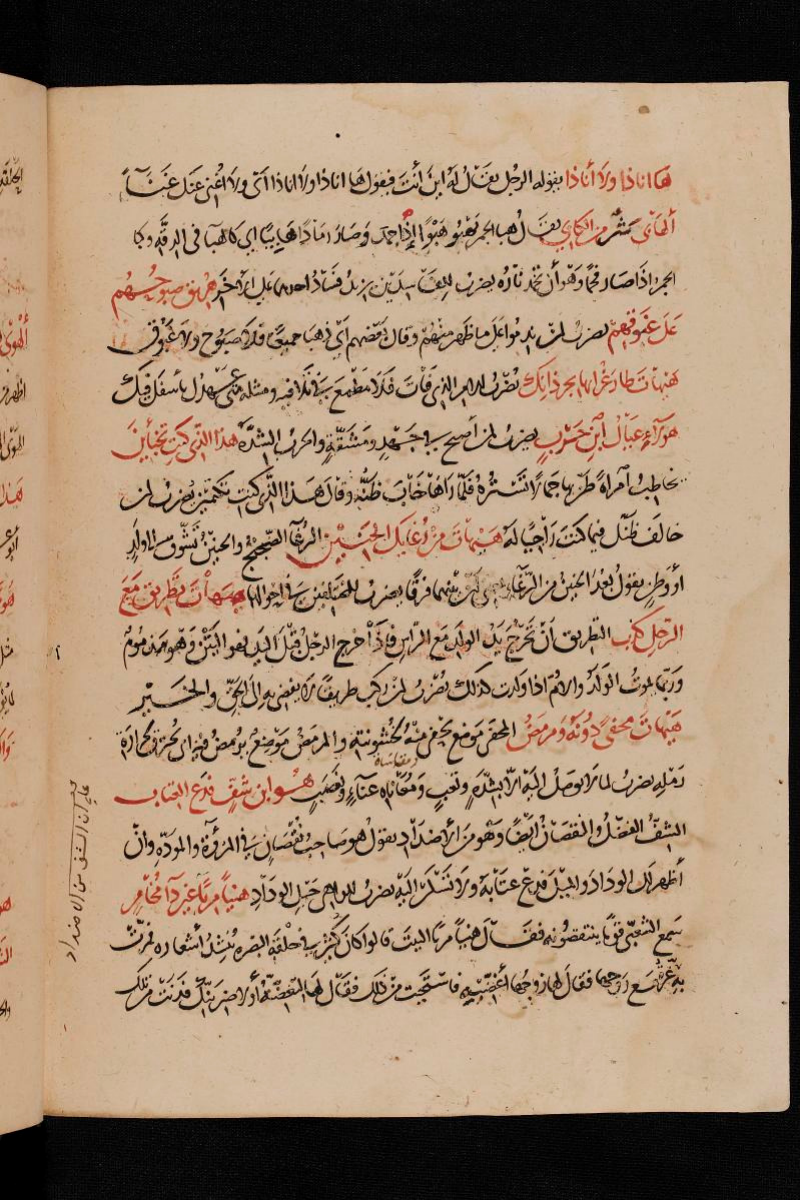 ها انا ذا ولا أنا ذا يقوله الرجل يقال له اين أنت فيقول ها انا ذا ولا انا ذا اى ولا اغنى عنك غنآءً
الهابى شر من الكابى يقال هبا الجمر يهبو هبوا إذا خمد وصار رمادا هابيا اى كالهبآ فى الدقة وكبا
الجمر اذا صار فحما وهو أن تخمد ناره يضرب للفاسدين يزيد فساد احدهما على الآخر هريق صبوحهم
على غبوقهم يضرب لمن ندموا على ما ظهر منهم وقال بعضهم اى ذهبا جميعا فلا صبوح ولا غبوق
هيهات طار غرابها بجرذانك يضرب للامر الذى فات فلا مطمع فى تلافيه ومثله
هؤلاء عيال ابن حوب يضرب لمن أصبح فى جهد ومشقة والحوب الشدة هذا الذى كنت تخبأين
يخاطب امرأة ظن بها جمالا تستره فلما رآها خاب ظنه وقال هذا الذى كنت تكتمين يضرب لمن
خالف ظنك فيما كنت راجيا له هيهات من رغائك الحنين الرغآ الضجيج والحنين تشوق من ولد
او وطن يقول بعد الحنين من الرغآء بينهما فرقا يضرب للمختلفين فى احوالهما هيهات تطريق مع
الرجل كذب التطريق ان تخرج يد الولد مع الراس فاذا خرج الرجل قبل اليد فهو اليتن وهو مذموم
وربما يموت الولد والام اذا ولدت كذلك يضرب لمن ركب طريقا لا يفضى به الى الحق والخير
هيهات محفى دونه ومرمض المحفى موضع يحفى منه لخشونته والمرمض موضع يرمض فيه اى يحترق لحرارة
رمله يضرب لما لا يوصل اليه الا بشدة وتعب ومعاناه عنآء ونصب هو ابن شف فدع العتاب
مقاساة
الشف الفضل والنقصان ايضا وهو من الاضداد يقول هو صاحب نقصان فى المروة والمودة وان
أظهر لك الوداد والميل فدع عتابه ولا تشكن اليه يضرب للواهى حبل الوداد هنيأ مريأ غير دآ مخامر
سمع الشعبى قوما ينتقصونه فقال هنيأ مريأ البيت قالوا كان كثير فى حلقة البصرة ينشد أشعاره فمرت
به عزة مع زوجها فقال لها زوجها أغضبيه فاستحيت من ذلك فقال لها لتغضبنه او لاضربنك فدنت من تلك
على ان الشف من الاضداد